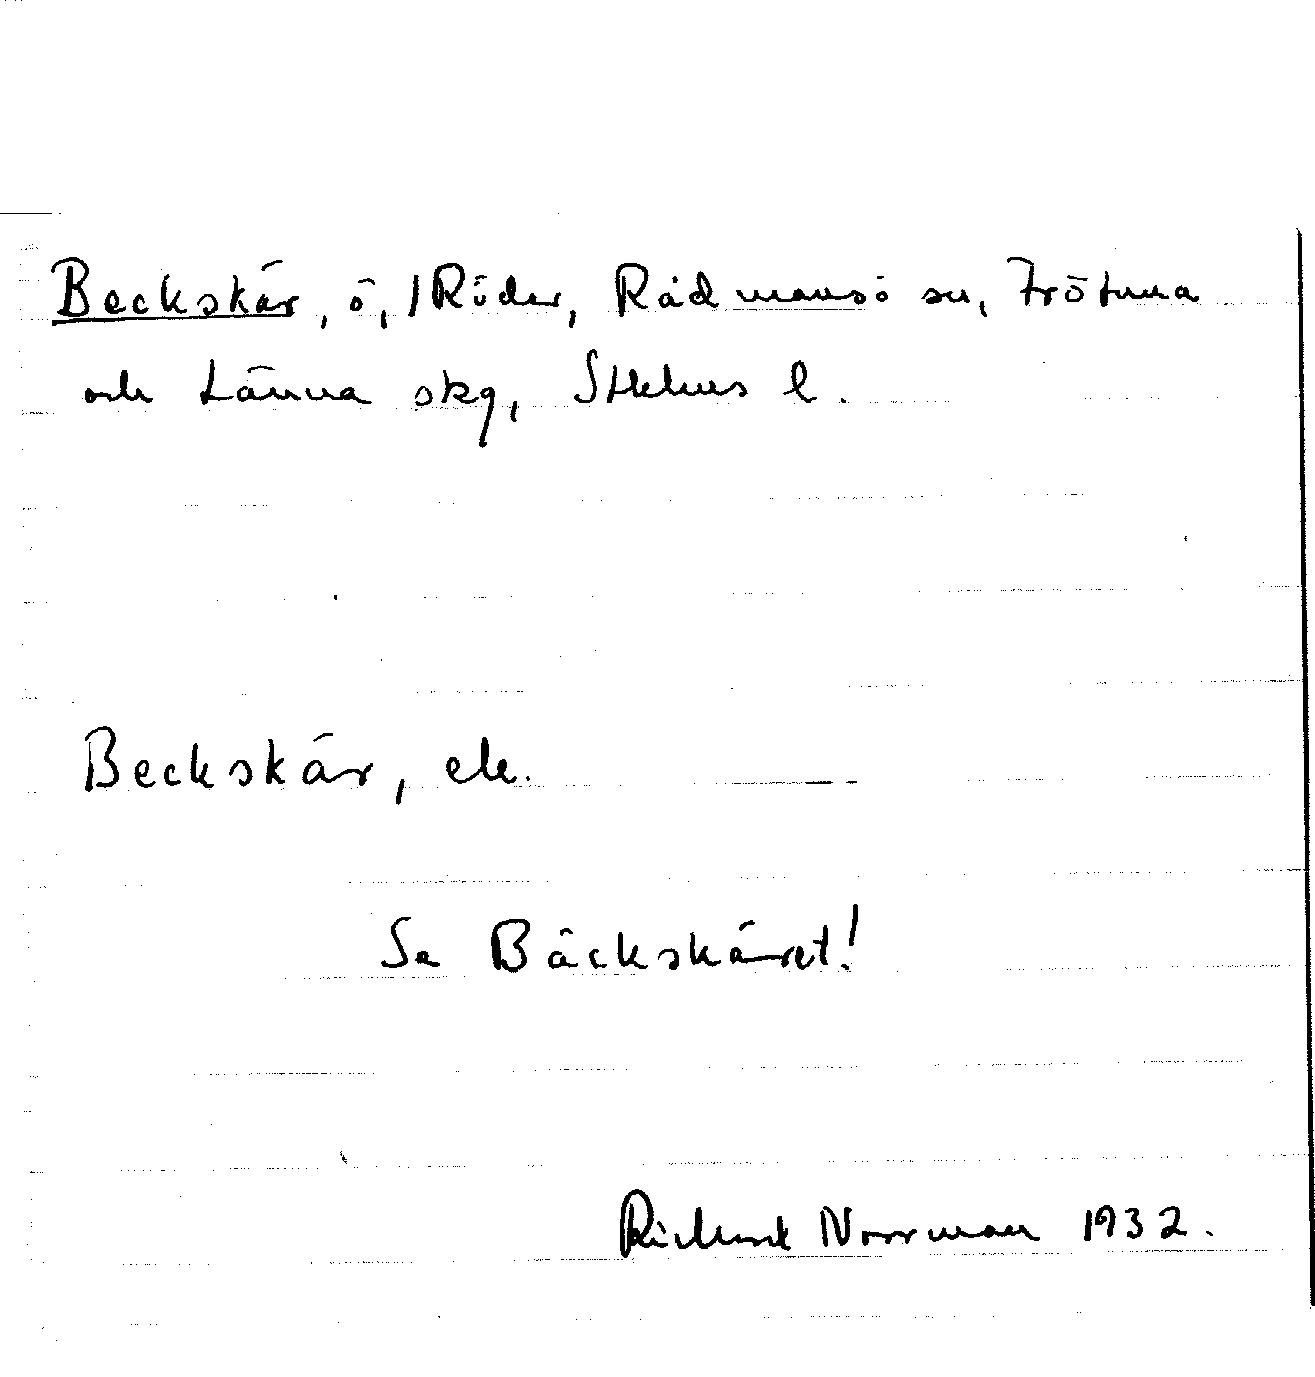 Beckskär, ö, i Röder, Rådmansö sn, Frötuna
och Länna skg, Sthlms l.
Beckskär, ek.
Se Bäckskäret!
Richard Norrman 1932.